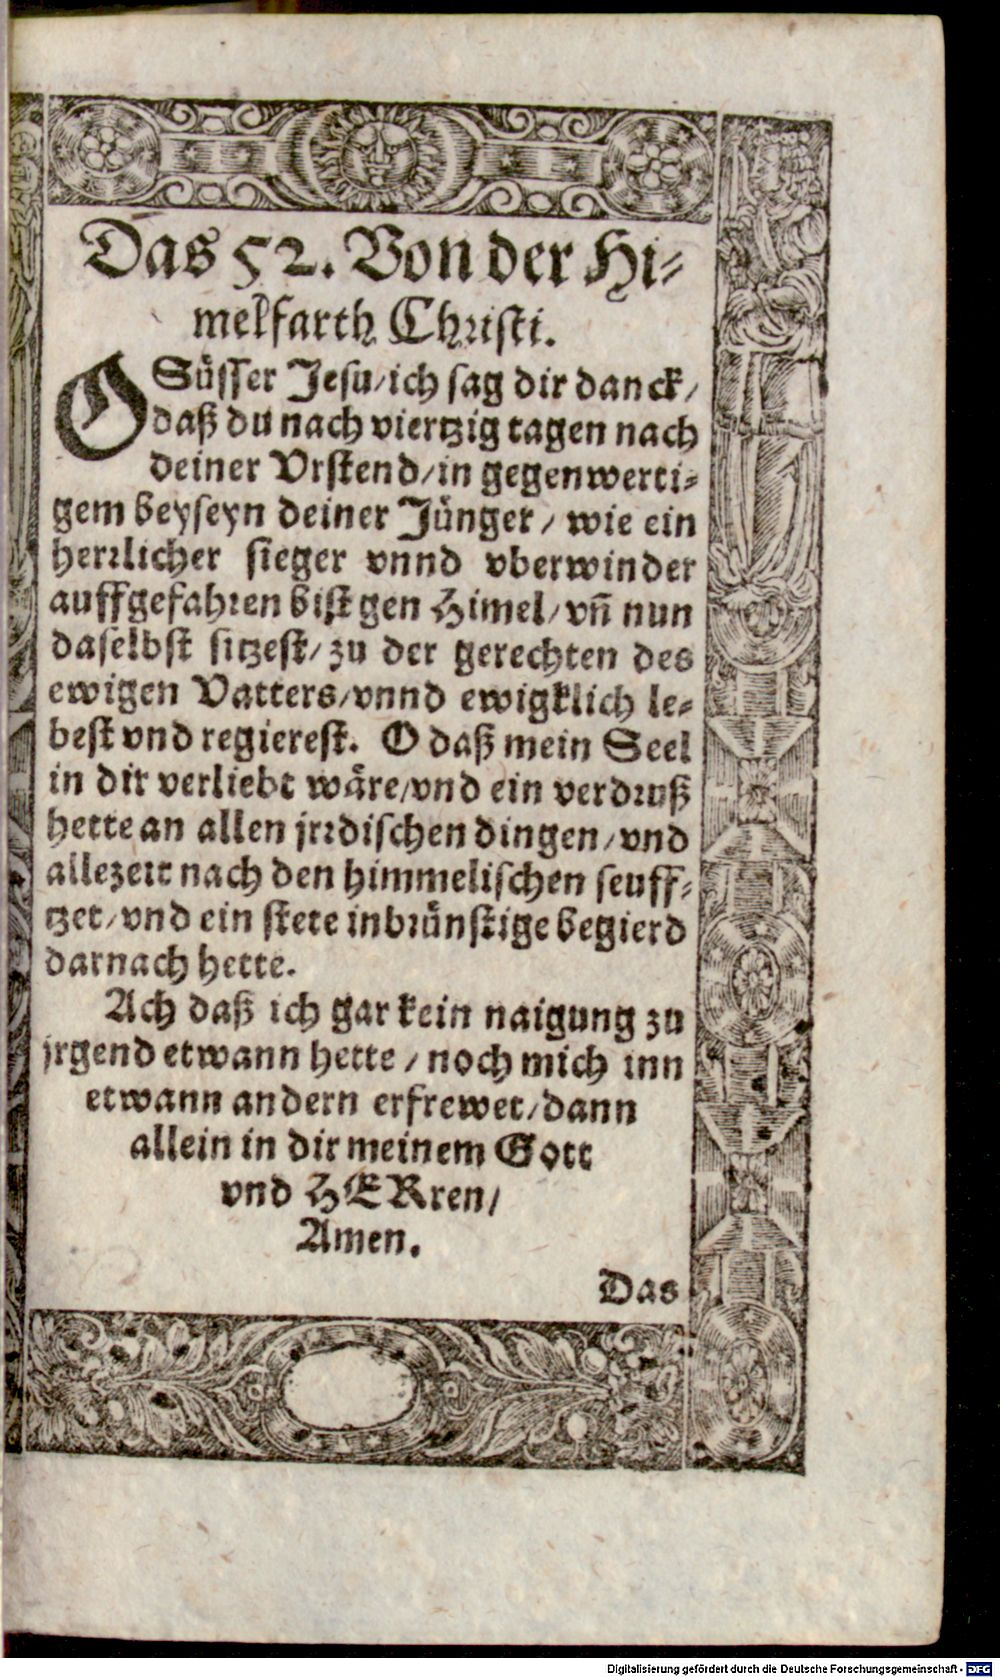 Das 52. Von der Hi-
melfarth Christi.
O Süsser Jesu/ich sag dir danck/
daß du nach viertzig tagen nach
deiner Vrstend/in gegenwerti-
gem beyseyn deiner Jünger/ wie ein
herrlicher sieger vnnd vberwinder
auffgefahren bist gen Himel/vn̄ nun
daselbst sitzest/zu der gerechten des
ewigen Vatters/vnnd ewigklich le-
best vnd regierest. O daß mein Seel
in dir verliebt wäre/vnd ein verdruß
hette an allen jrrdischen dingen/vnd
allezeit nach den himmelischen seuff-
tzet/vnd ein stete inbrünstige begierd
darnach hette.
Ach daß ich gar kein naigung zu
jrgend etwann hette/noch mich inn
etwann andern erfrewet/dann
allein in dir meinem Gott
vnd HERren/
Amen.
Das
Digitalisierung gefördert durch die Deutsche Forschungsgemeinschaft - DFG